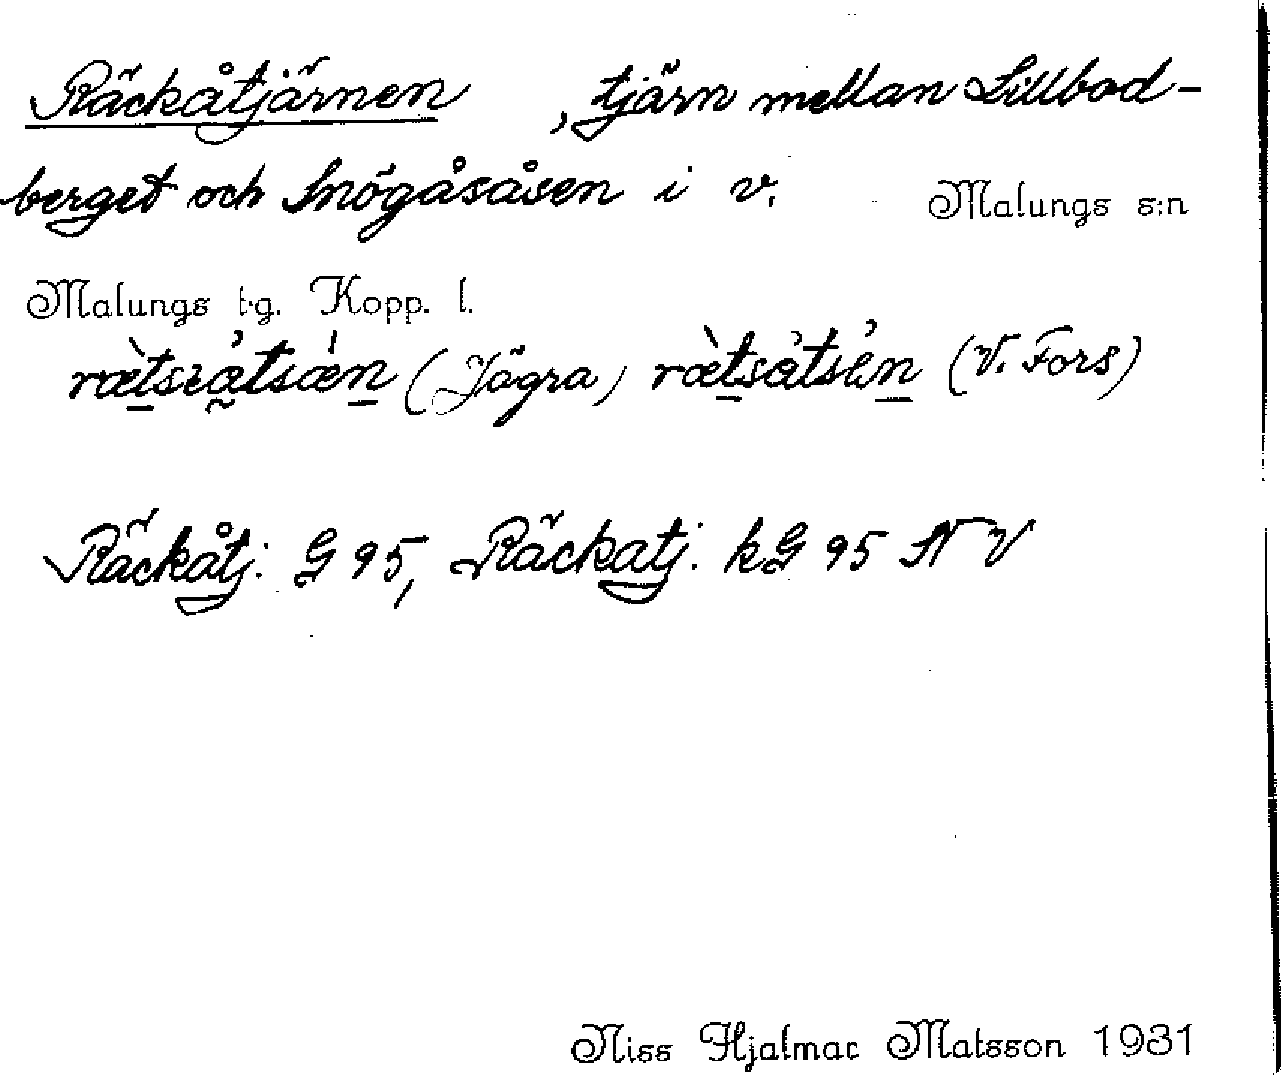 Räckåtjärnen , tjärn mellan Lillbod-
berget och Snögåsåsen i v. Malungs s:n
Malungs t.g. Kopp. l.
(Jägra) (V. Fors)
Räckåtj. G 95, Räckatj. kG 95 N V
Niss Hjalmar Matsson 1931